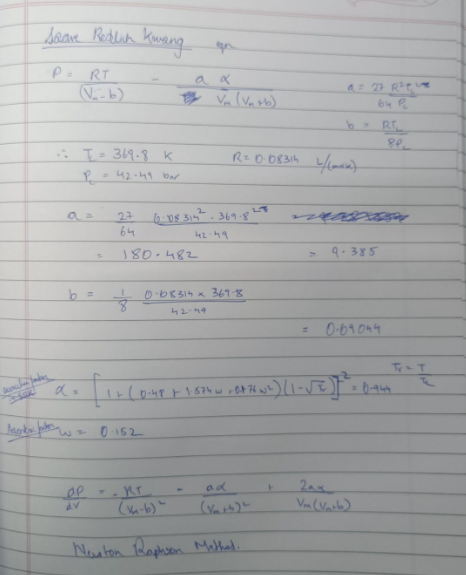 Soave Redlich Kwang eqn
P = RT/(Vm-b) - a α/Vm(Vm+b)
a = 27/64 R²Tc^2.5/Pc
b = RTc/8Pc
∴ Tc = 369.8 K R = 0.08314
Pc = 42.49 bar
a = 27/64 0.08314² . 369.8^2.5/42.49
= 180.482 = 9.385
b = 1/8 0.08314 x 369.8/42.49
= 0.09044
α = [1+(0.48 + 1.574w - 0.176w²)(1-√Tr)]² = 0.944 Tr = T/Tc
w = 0.152
dP/dV = -RT/(Vm-b)² - aα/(Vm+b)² + 2aα/Vm(Vm+b)
Newton Raphson Method.